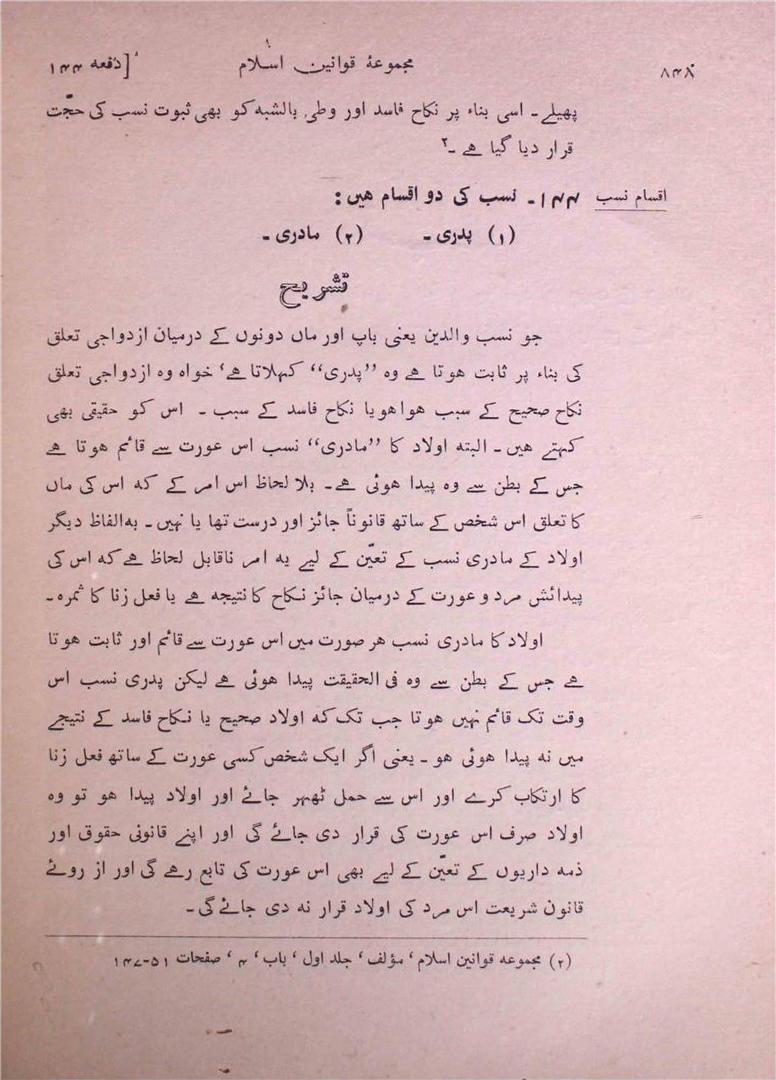 ۸۴۸ مجموعۂ قوانین اسلام [دفعہ ۱۴۴
پھیلے۔ اسی بناء پر نکاح فاسد اور وطی بالشبہ کو بھی ثبوت نسب کی حجّت
قرار دیا گیا ہے ۔۲
اقسام نسب ۱۴۴۔ نسب کی دو اقسام ہیں:
(۱) پدری۔ (۲) مادری۔
تشریح
جو نسب والدین یعنی باپ اور ماں دونوں کے درمیان ازدواجی تعلق
کی بناء پر ثابت ہوتا ہے وہ ’’پدری‘‘ کہلاتا ہے‘ خواہ وہ ازدواجی تعلق
نکاح صحیح کے سبب ہوا ہو یا نکاح فاسد کے سبب ۔ اس کو حقیقی بھی
کہتے ہیں۔ البتہ اولاد کا ’’مادری‘‘ نسب اس عورت سے قائم ہوتا ہے
جس کے بطن سے وہ پیدا ہوئی ہے۔ بلا لحاظ اس امر کے کہ اس کی ماں
کا تعلق اس شخص کے ساتھ قانوناً جائز اور درست تھا یا نہیں۔ بہ الفاظ دیگر
اولاد کے مادری نسب کے تعیّن کے لیے یہ امر ناقابل لحاظ ہے کہ اس کی
پیدائش مرد و عورت کے درمیان جائز نکاح کا نتیجہ ہے یا فعل زنا کا ثمرہ۔
اولاد کا مادری نسب ہر صورت میں اس عورت سے قائم اور ثابت ہوتا
ہے جس کے بطن سے وہ فی الحقیقت پیدا ہوئی ہے لیکن پدری نسب اس
وقت تک قائم نہیں ہوتا جب تک کہ اولاد صحیح یا نکاح فاسد کے نتیجے
میں نہ پیدا ہوئی ہو ۔ یعنی اگر ایک شخص کسی عورت کے ساتھ فعل زنا
کا ارتکاب کرے اور اس سے حمل ٹھہر جائے اور اولاد پیدا ہو تو وہ
اولاد صرف اس عورت کی قرار دی جائے گی اور اپنے قانونی حقوق اور
ذمہ داریوں کے تعیّن کے لیے بھی اس عورت کی تابع رہے گی اور از روئے
قانون شریعت اس مرد کی اولاد قرار نہ دی جائے گی۔
(۲) مجموعہ قوانین اسلام‘ مؤلف‘ جلد اول‘ باب‘ ۴‘ صفحات ۵۱-۱۴۷